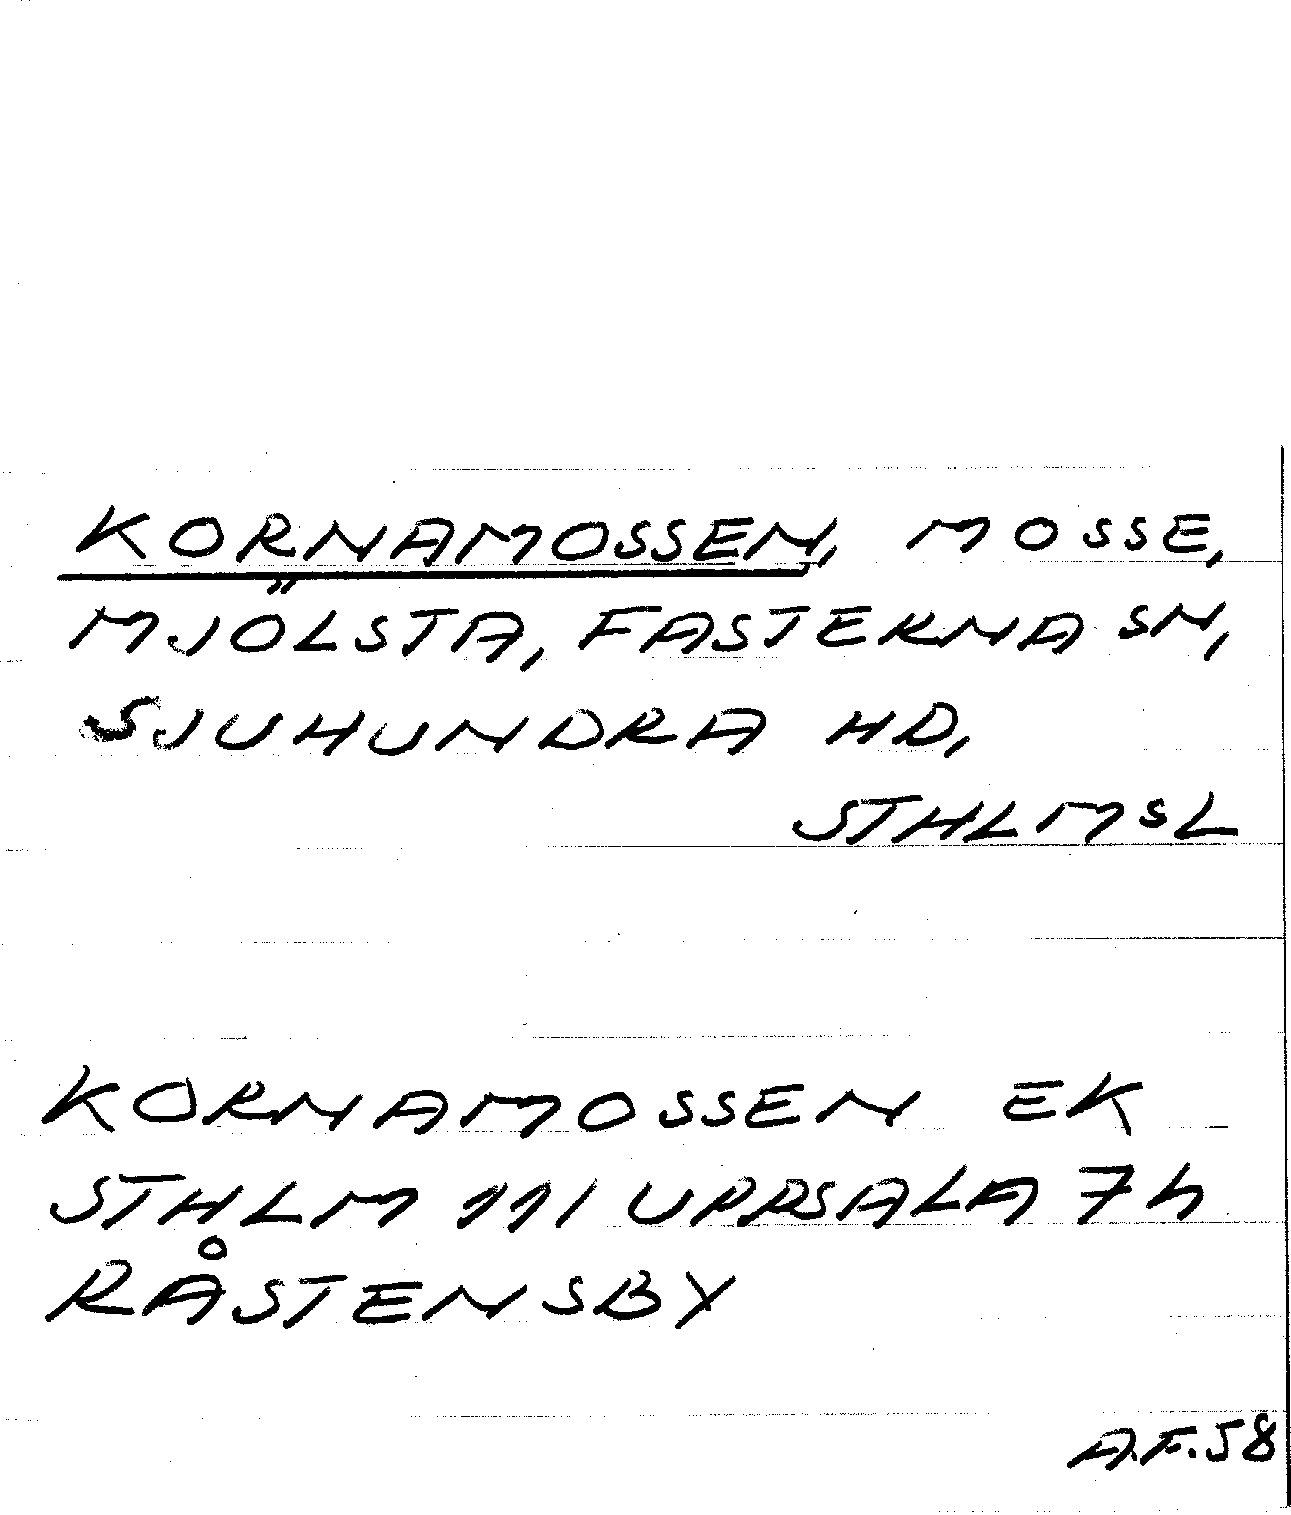 KORNAMOSSEN, MOSSE,
MJÖLSTA, FASTERNA SN,
SJUHUNDRA HD,
STHLMSL
KORNAMOSSEN EK
STHLM 111 UPPSALA 7h
RÅSTENSBY
A.F.58